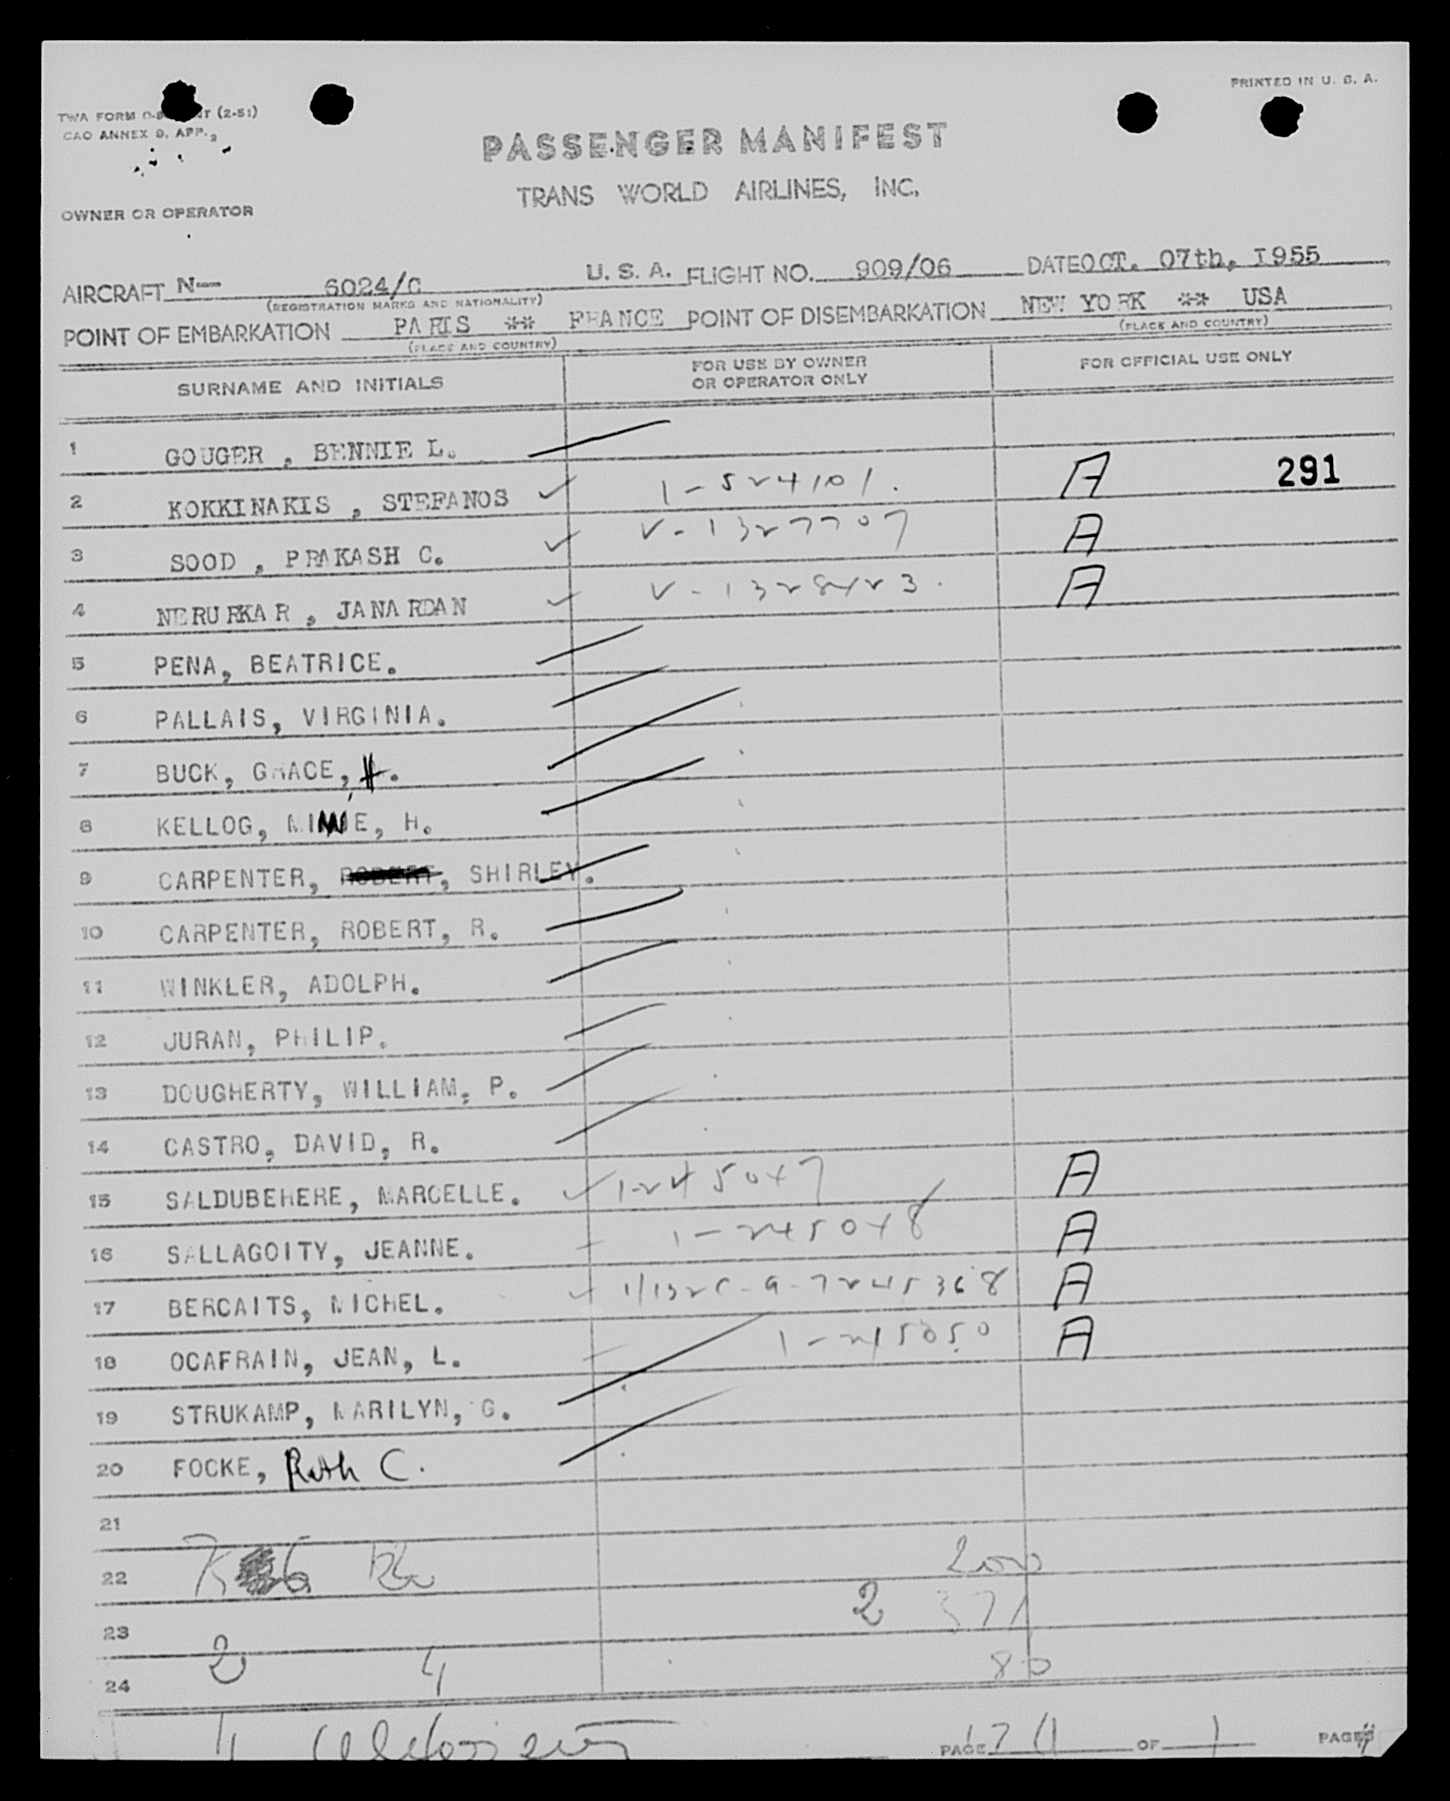 PRINTED IN U. S. A.
TWA FORM (2-51)
CAO ANNEX 9, APP. 2
PASSENGER MANIFEST
TRANS WORLD AIRLINES, INC.
OWNER OR OPERATOR
AIRCRAFT N— 6024/C U. S. A. FLIGHT NO. 909/06 DATE OCT. 07th, I955
(REGISTRATION MARKS AND NATIONALITY)
POINT OF EMBARKATION PARIS ** FRANCE POINT OF DISEMBARKATION NEW YORK ** USA
(PLACE AND COUNTRY) (PLACE AND COUNTRY)
SURNAME AND INITIALS FOR USE BY OWNER OR OPERATOR ONLY FOR OFFICIAL USE ONLY
1 GOUGER , BENNIE L.
2 KOKKINAKIS , STEFANOS 1-524101. A 291
3 SOOD , PRAKASH C. V-1327707 A
4 NERURKAR , JANARDAN V-1328423. A
5 PENA, BEATRICE.
6 PALLAIS, VIRGINIA.
7 BUCK, GRACE, H.
8 KELLOG, MINNIE, H.
9 CARPENTER, ROBERT, SHIRLEY.
10 CARPENTER, ROBERT, R.
11 WINKLER, ADOLPH.
12 JURAN, PHILIP.
13 DOUGHERTY, WILLIAM, P.
14 CASTRO, DAVID, R.
15 SALDUBEHERE, MARCELLE. 1-245047 A
16 SALLAGOITY, JEANNE. 1-245048 A
17 BERCAITS, MICHEL. A
18 OCAFRAIN, JEAN, L. A
19 STRUKAMP, MARILYN, G.
20 FOCKE, Ruth C.
21
22 200
23 2 371
24 2 4 80
PAGE OF 1 PAGES